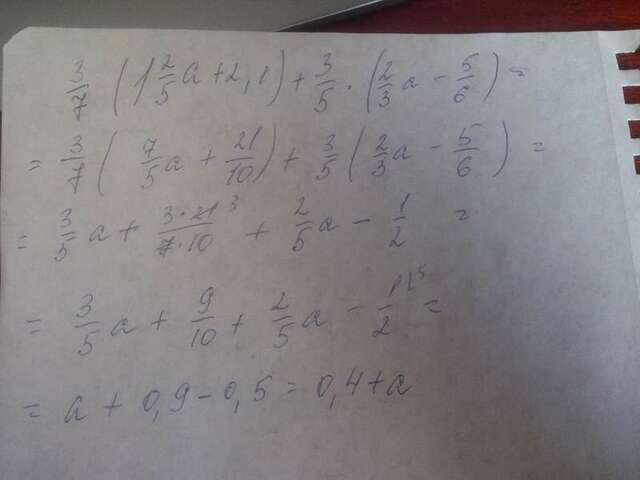 3/7 (1 2/5 a + 2,1) + 3/5 · (2/3 a − 5/6) =
= 3/7 (7/5 a + 21/10) + 3/5 (2/3 a − 5/6) =
= 3/5 a + 3·21 3/7·10 + 2/5 a − 1/2 =
= 3/5 a + 9/10 + 2/5 a − 1/2 =
= a + 0,9 − 0,5 = 0,4 + a